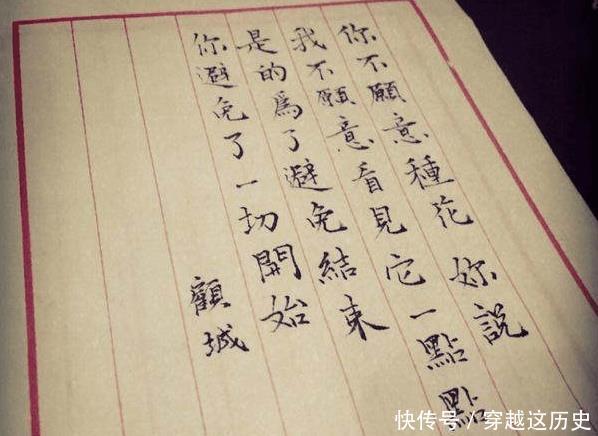 你不願意種花 妳說
我不願意看見它一點點
是的爲了避免結束
你避免了一切開始
顧城
快传号/穿越这历史